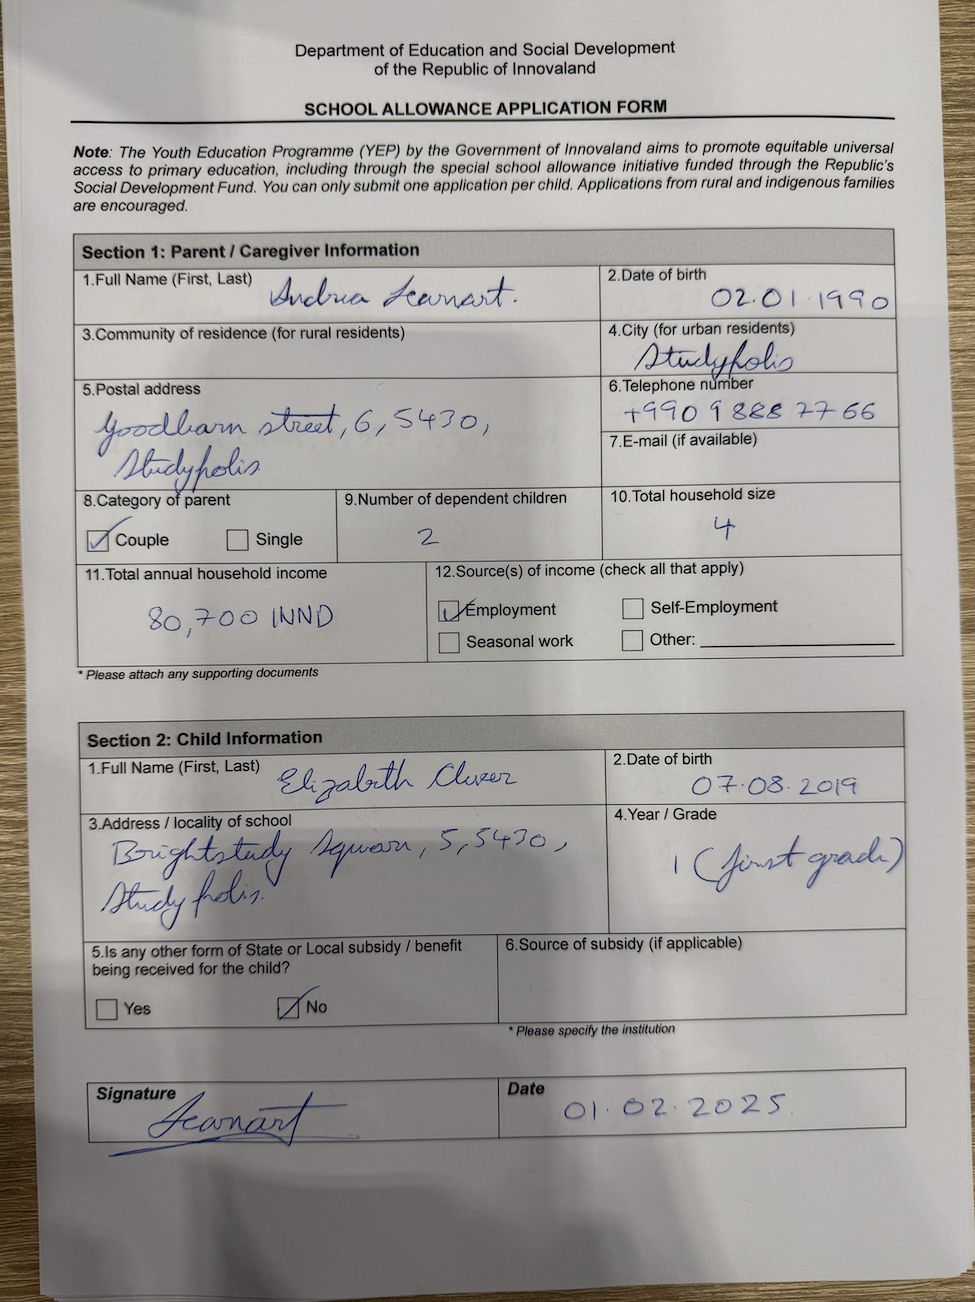 Department of Education and Social Development
of the Republic of Innovaland
SCHOOL ALLOWANCE APPLICATION FORM
Note: The Youth Education Programme (YEP) by the Government of Innovaland aims to promote equitable universal
access to primary education, including through the special school allowance initiative funded through the Republic's
Social Development Fund. You can only submit one application per child. Applications from rural and indigenous families
are encouraged.
Section 1: Parent / Caregiver Information
1.Full Name (First, Last) Andrea Learnart.
2.Date of birth
02.01.1990
3.Community of residence (for rural residents)
4.City (for urban residents)
Studypolis
5.Postal address
Goodbarn street, 6, 5430,
Studypolis
6.Telephone number
+990 9 888 77 66
7.E-mail (if available)
8.Category of parent
Couple Single
9.Number of dependent children
2
10.Total household size
4
11.Total annual household income
80,700 INND
12.Source(s) of income (check all that apply)
Employment Self-Employment
Seasonal work Other:
* Please attach any supporting documents
Section 2: Child Information
1.Full Name (First, Last) Elizabeth
2.Date of birth
07.08.2019
3.Address / locality of school
Brightstudy Square, 5, 5430,
Studypolis.
4.Year / Grade
1 (first grade)
5.Is any other form of State or Local subsidy / benefit
being received for the child?
Yes No
6.Source of subsidy (if applicable)
* Please specify the institution
Signature
Learnart
Date
01.02.2025.